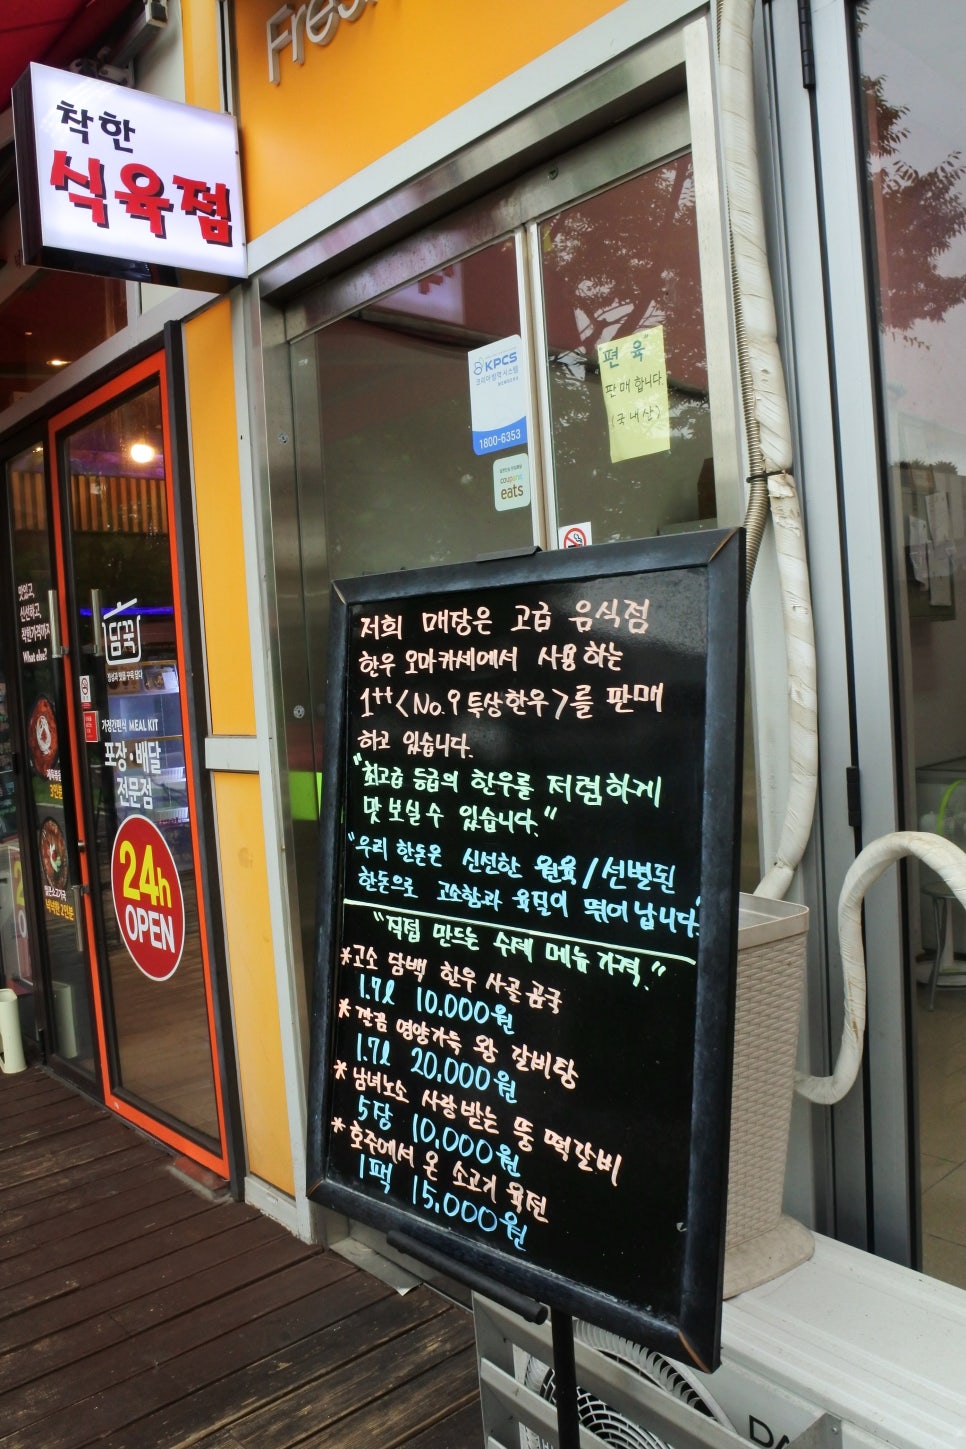 Fres
착한
식육점
KPCS
코리아방역시스템
1800-6353
coupang
eats
편육
판매합니다.
(국내산)
맛있고,
신선하고,
착한가격까지
What else?
담꾹
가정간편식 MEAL KIT
포장·배달
전문점
24h
OPEN
3인분
넉넉한 2인분
저희 매장은 고급 음식점
한우 오마카세에서 사용하는
1++<No.9 특상한우>를 판매
하고 있습니다.
"최고급 등급의 한우를 저렴하게
맛 보실수 있습니다."
"우리 한돈은 신선한 원육/선별된
한돈으로 고소함과 육질이 뛰어납니다"
"직접 만드는 수제 메뉴 가격."
*고소 담백 한우 사골곰국
1.7l 10.000원
*깔끔 영양가득 왕 갈비탕
1.7l 20,000원
*남녀노소 사랑받는 뚱 떡갈비
5장 10,000원
*호주에서 온 소고기 육전
1팩 15,000원
DA